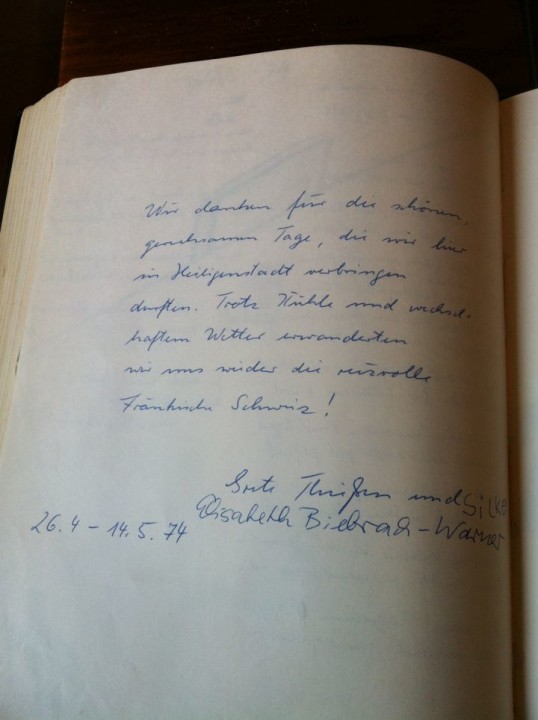 Wir danken für die schönen,
geruhsamen Tage, die wir hier
in Heiligenstadt verbringen
durften. Trotz Kühle und wechsel-
haftem Wetter erwanderten
wir uns wieder die reizvolle
Fränkische Schweiz!
Grete und Silke
Elisabeth Biebrach-Warner
26.4 - 14.5. 74